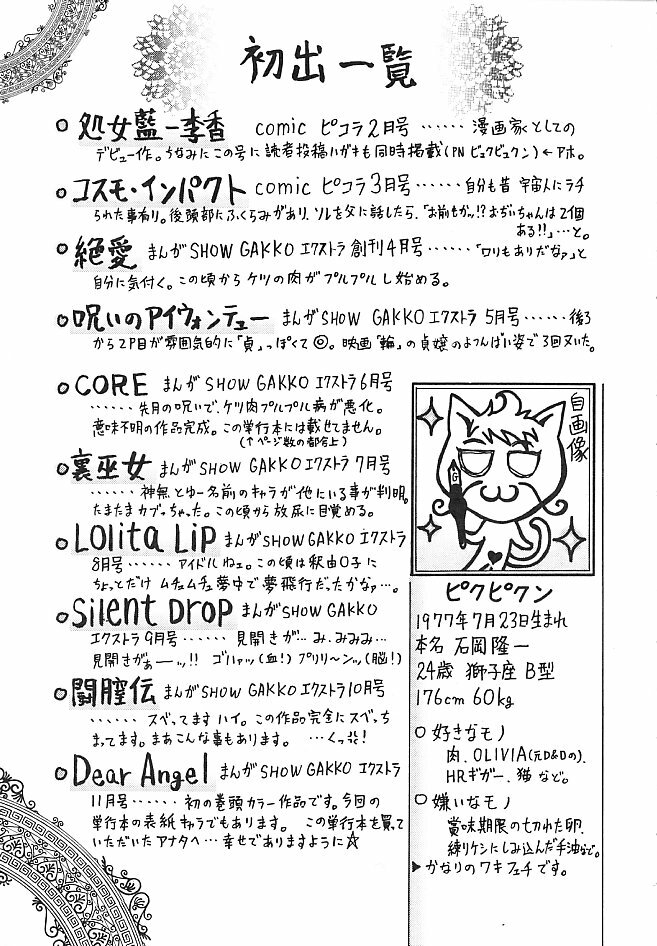 初出一覧
○処女藍ー李香 comic ピコラ2月号 ……漫画家としての
デビュー作。ちなみにこの号に読者投稿ハガキも同時掲載(PN ピュクピュクン)←アホ。
○コスモ・インパクト comic ピコラ3月号……自分も昔 宇宙人にラチ
られた事有り。後頭部にふくらみがあり、ソレを父に話したら、「お前もかッ!?おぢいちゃんは2個
ある!!」…と。
○絶愛 まんがSHOW GAKKO エクストラ 創刊4月号……「ロリもありだなァ」と
自分に気付く。この頃からケツの肉がプルプルし始める。
○呪いのアイウォンテュー まんがSHOW GAKKO エクストラ 5月号……後ろ
から2P目が雰囲気的に「貞」っぽくて◎。映画「輪」の貞嬢のよつんばい姿で3回ヌいた。
○CORE まんがSHOW GAKKO エクストラ6月号
……先月の呪いで、ケツ肉プルプル病が悪化。
意味不明の作品完成。この単行本には載せてません。
(↑ページ数の都合上)
○裏巫女 まんがSHOW GAKKO エクストラ 7月号
……神無とゆー名前のキャラが他にいる事が判明。
たまたまカブっちゃった。この頃から放尿に目覚める。
○Lolita Lip まんがSHOW GAKKO エクストラ
8月号……アイドルねェ。この頃は釈由○子に
ちょっとだけムチュムチュ夢中で夢飛行だったかなァ…。
○Silent Drop まんがSHOW GAKKO
エクストラ9月号……見開きが…み、みみみ…
見開きがぁーッ!! ゴハァッ(血!)プリリ〜ンッ(脳!)
○闘膣伝 まんがSHOW GAKKO エクストラ10月号
……スベってます ハイ。この作品完全にスベっち
まってます。まあこんな事もあります。 …くっ!
○Dear Angel まんがSHOW GAKKO エクストラ
11月号……初の巻頭カラー作品です。今回の
単行本の表紙キャラでもあります。 この単行本を買って
いただいたアナタへ…幸せでありますように☆
自画像
G
ピクピクン
1977年7月23日生まれ
本名 石岡隆一
24歳 獅子座 B型
176cm 60kg
○好きなモノ
肉、OLIVIA(元D&Dの)、
HRギガー、猫 など。
○嫌いなモノ
賞味期限の切れた卵、
練りケシにしみ込んだ手油など。
▶かなりのワキフェチです。